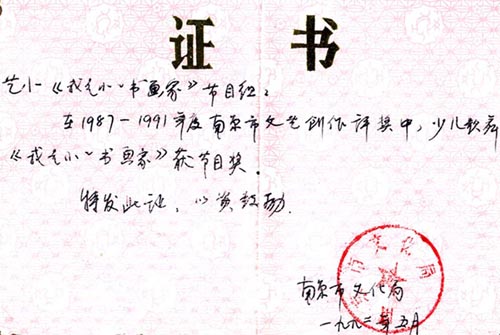 证书
艺小《我是小小书画家》节目组:
在1987-1991年度南京市文艺创作评奖中,少儿歌舞
《我是小小书画家》获节目奖.
特发此证,以资鼓励.
南京市文化局
一九九二年五月